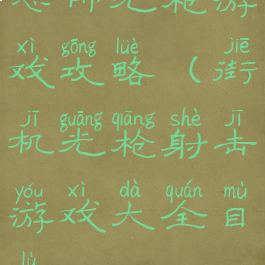 光枪游
xì gōng lüè jiē
戏攻略(街
jī guāng qiāng shè jī
机光枪射击
yóu xì dà quán mù
游戏大全目
lù